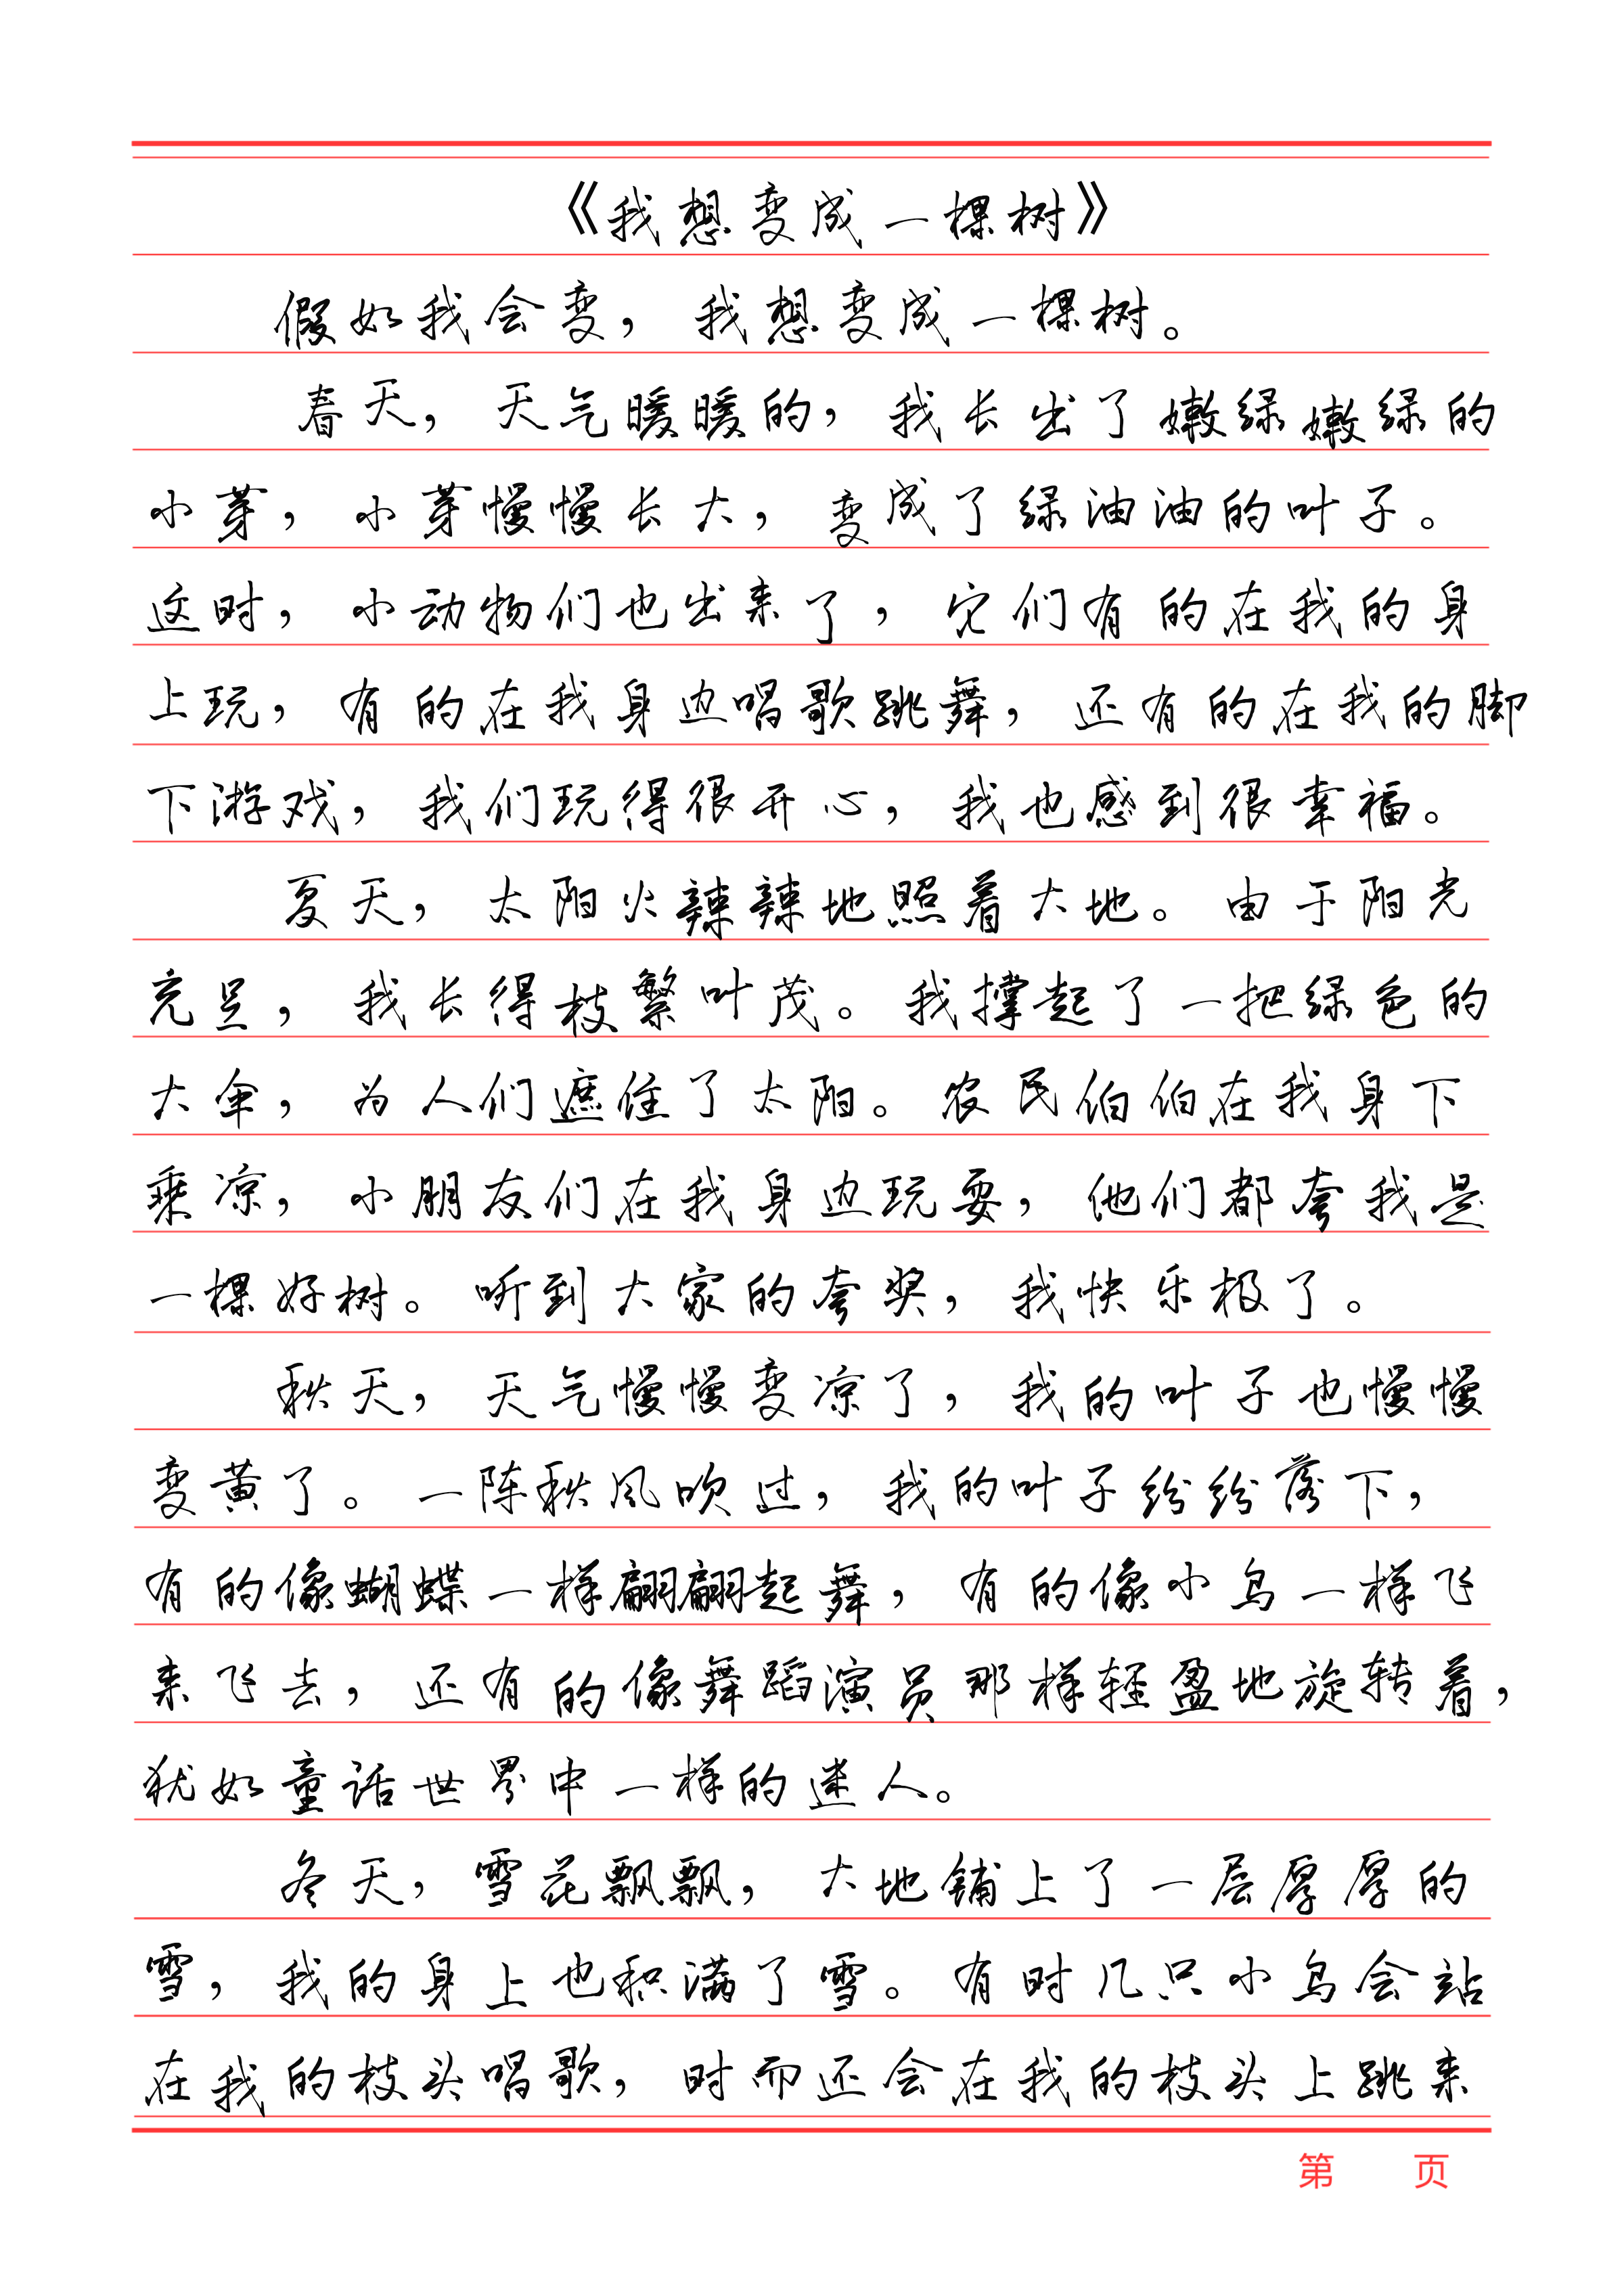 《我想变成一棵树》
假如我会变，我想变成一棵树。
春天，天气暖暖的，我长出了嫩绿嫩绿的
小芽，小芽慢慢长大，变成了绿油油的叶子。
这时，小动物们也出来了，它们有的在我的身
上玩，有的在我身边唱歌跳舞，还有的在我的脚
下游戏，我们玩得很开心，我也感到很幸福。
夏天，太阳火辣辣地照着大地。由于阳光
充足，我长得枝繁叶茂。我撑起了一把绿色的
大伞，为人们遮住了太阳。农民伯伯在我身下
乘凉，小朋友们在我身边玩耍，他们都夸我是
一棵好树。听到大家的夸奖，我快乐极了。
秋天，天气慢慢变凉了，我的叶子也慢慢
变黄了。一阵秋风吹过，我的叶子纷纷落下，
有的像蝴蝶一样翩翩起舞，有的像小鸟一样飞
来飞去，还有的像舞蹈演员那样轻盈地旋转着，
犹如童话世界中一样的迷人。
冬天，雪花飘飘，大地铺上了一层厚厚的
雪，我的身上也积满了雪。有时几只小鸟会站
在我的枝头唱歌，时而还会在我的枝头上跳来
第 页